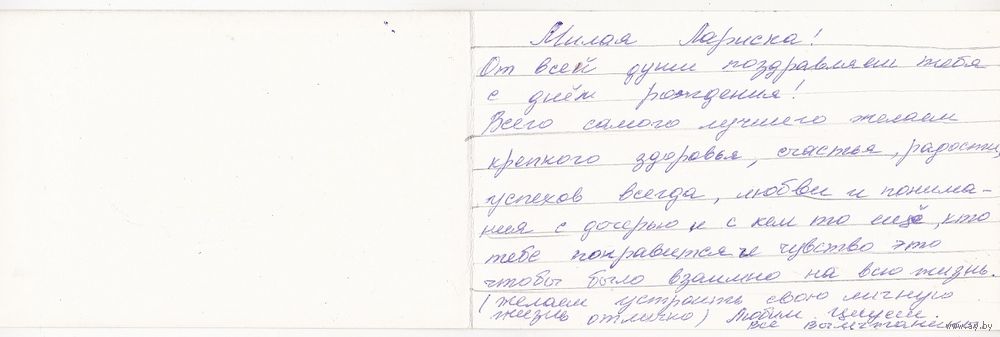 Милая Лариска!
От всей души поздравляем тебя
с днём рождения!
Всего самого лучшего желаем
крепкого здоровья, счастья, радости,
успехов всегда, любви и понима-
ния с дочерью и с кем то ещё, кто
тебе понравится и чувство это
чтобы было взаимно на всю жизнь.
(желаем устроить свою личную
жизнь отлично) Любим целуем.
все
www.ay.by